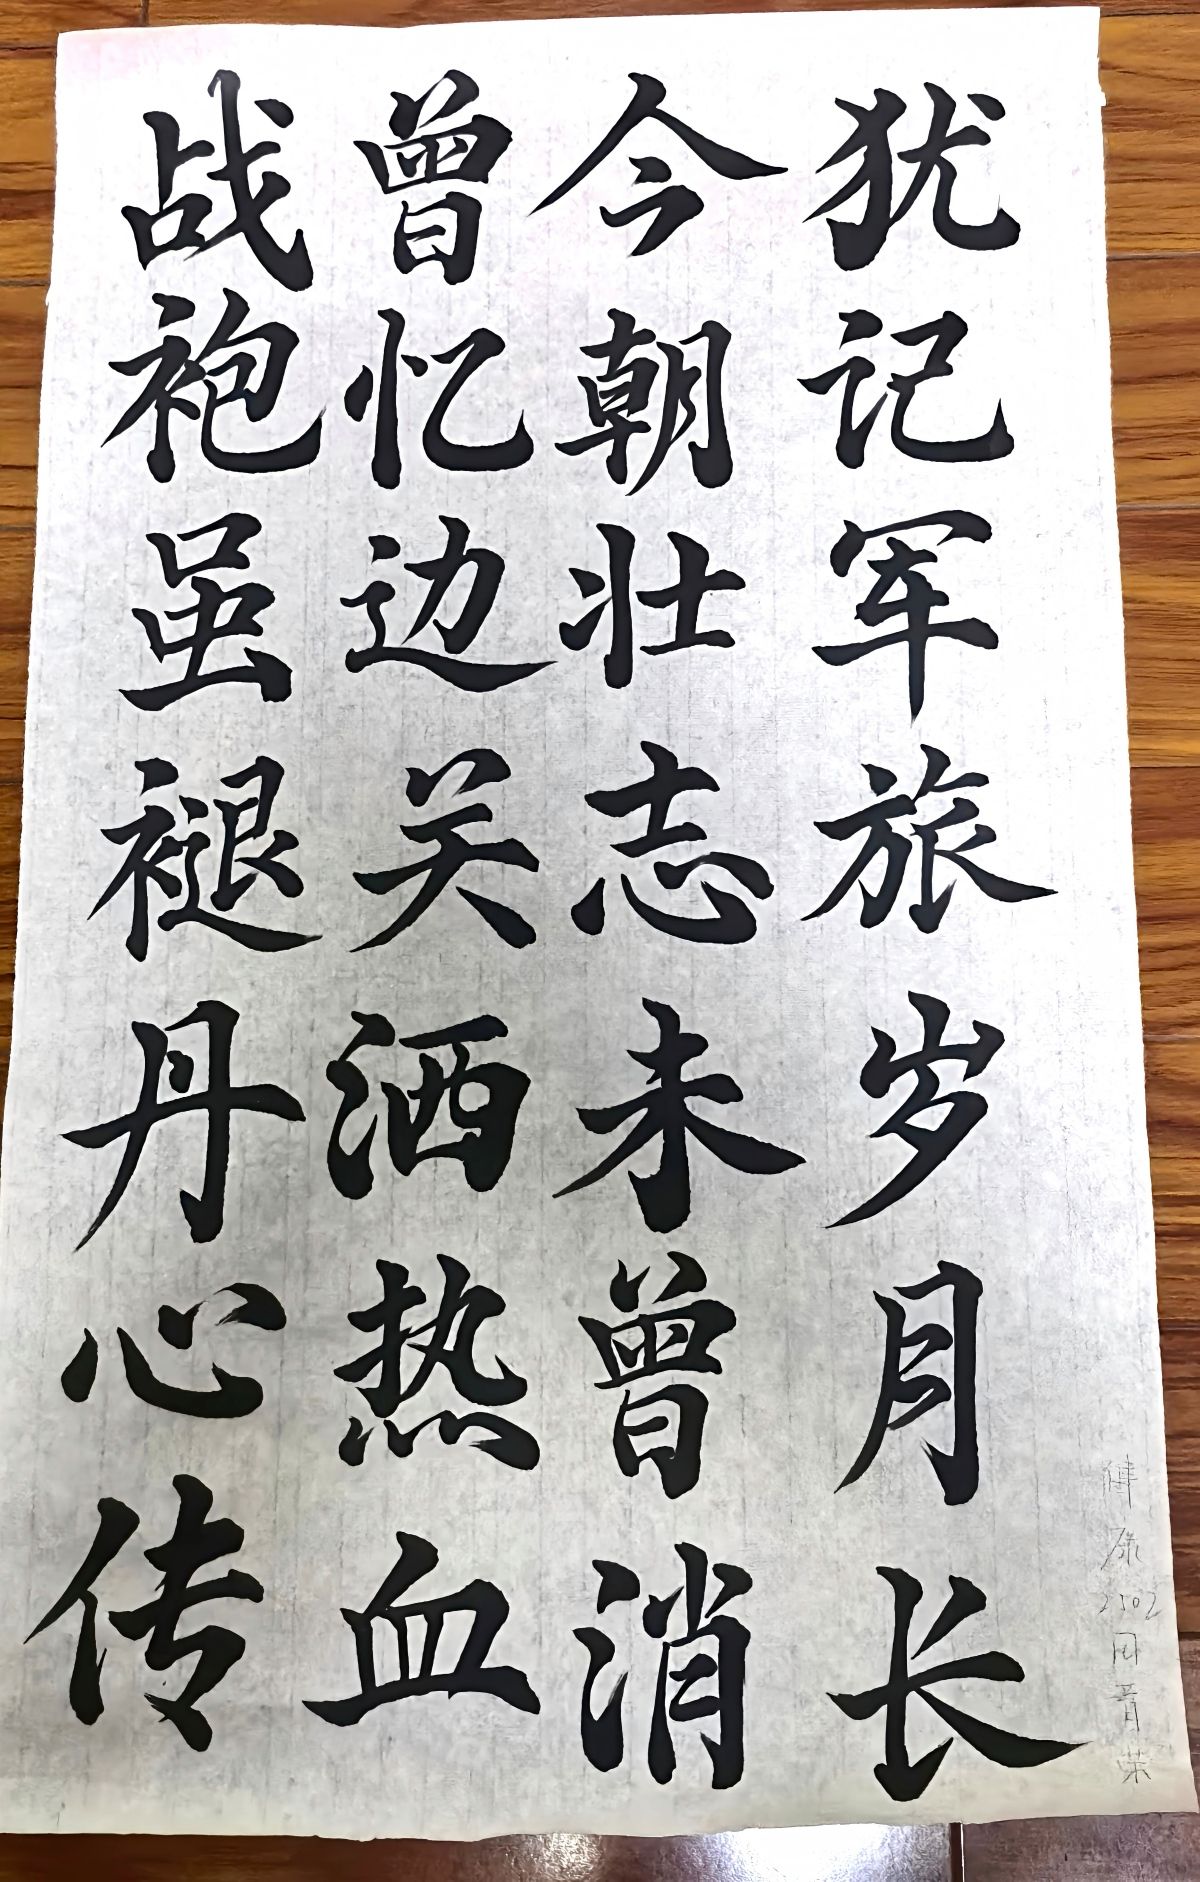 犹记军旅岁月长
今朝壮志未曾消
曾忆边关洒热血
战袍虽褪丹心传
康复2502周青荣